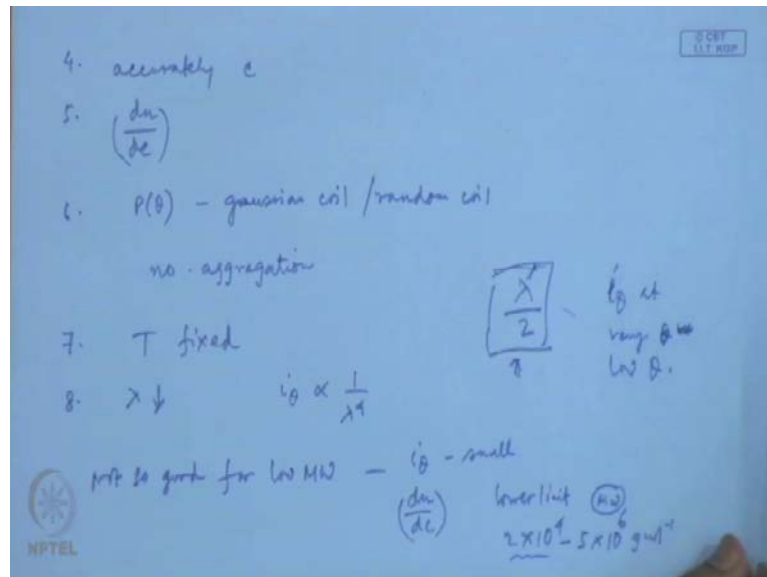 © CET
I.I.T. KGP
4. accurately c
5. (dn/dc)
6. P(θ) - gaussian coil / random coil
no aggregation
7. T fixed
8. λ↓ i_θ ∝ 1/λ⁴
λ'/2
i_θ at
very θ
low θ.
not so good for low MW - i_θ - small
(dn/dc) lower limit MW
2×10⁴ - 5×10⁶ g mol⁻¹
NPTEL